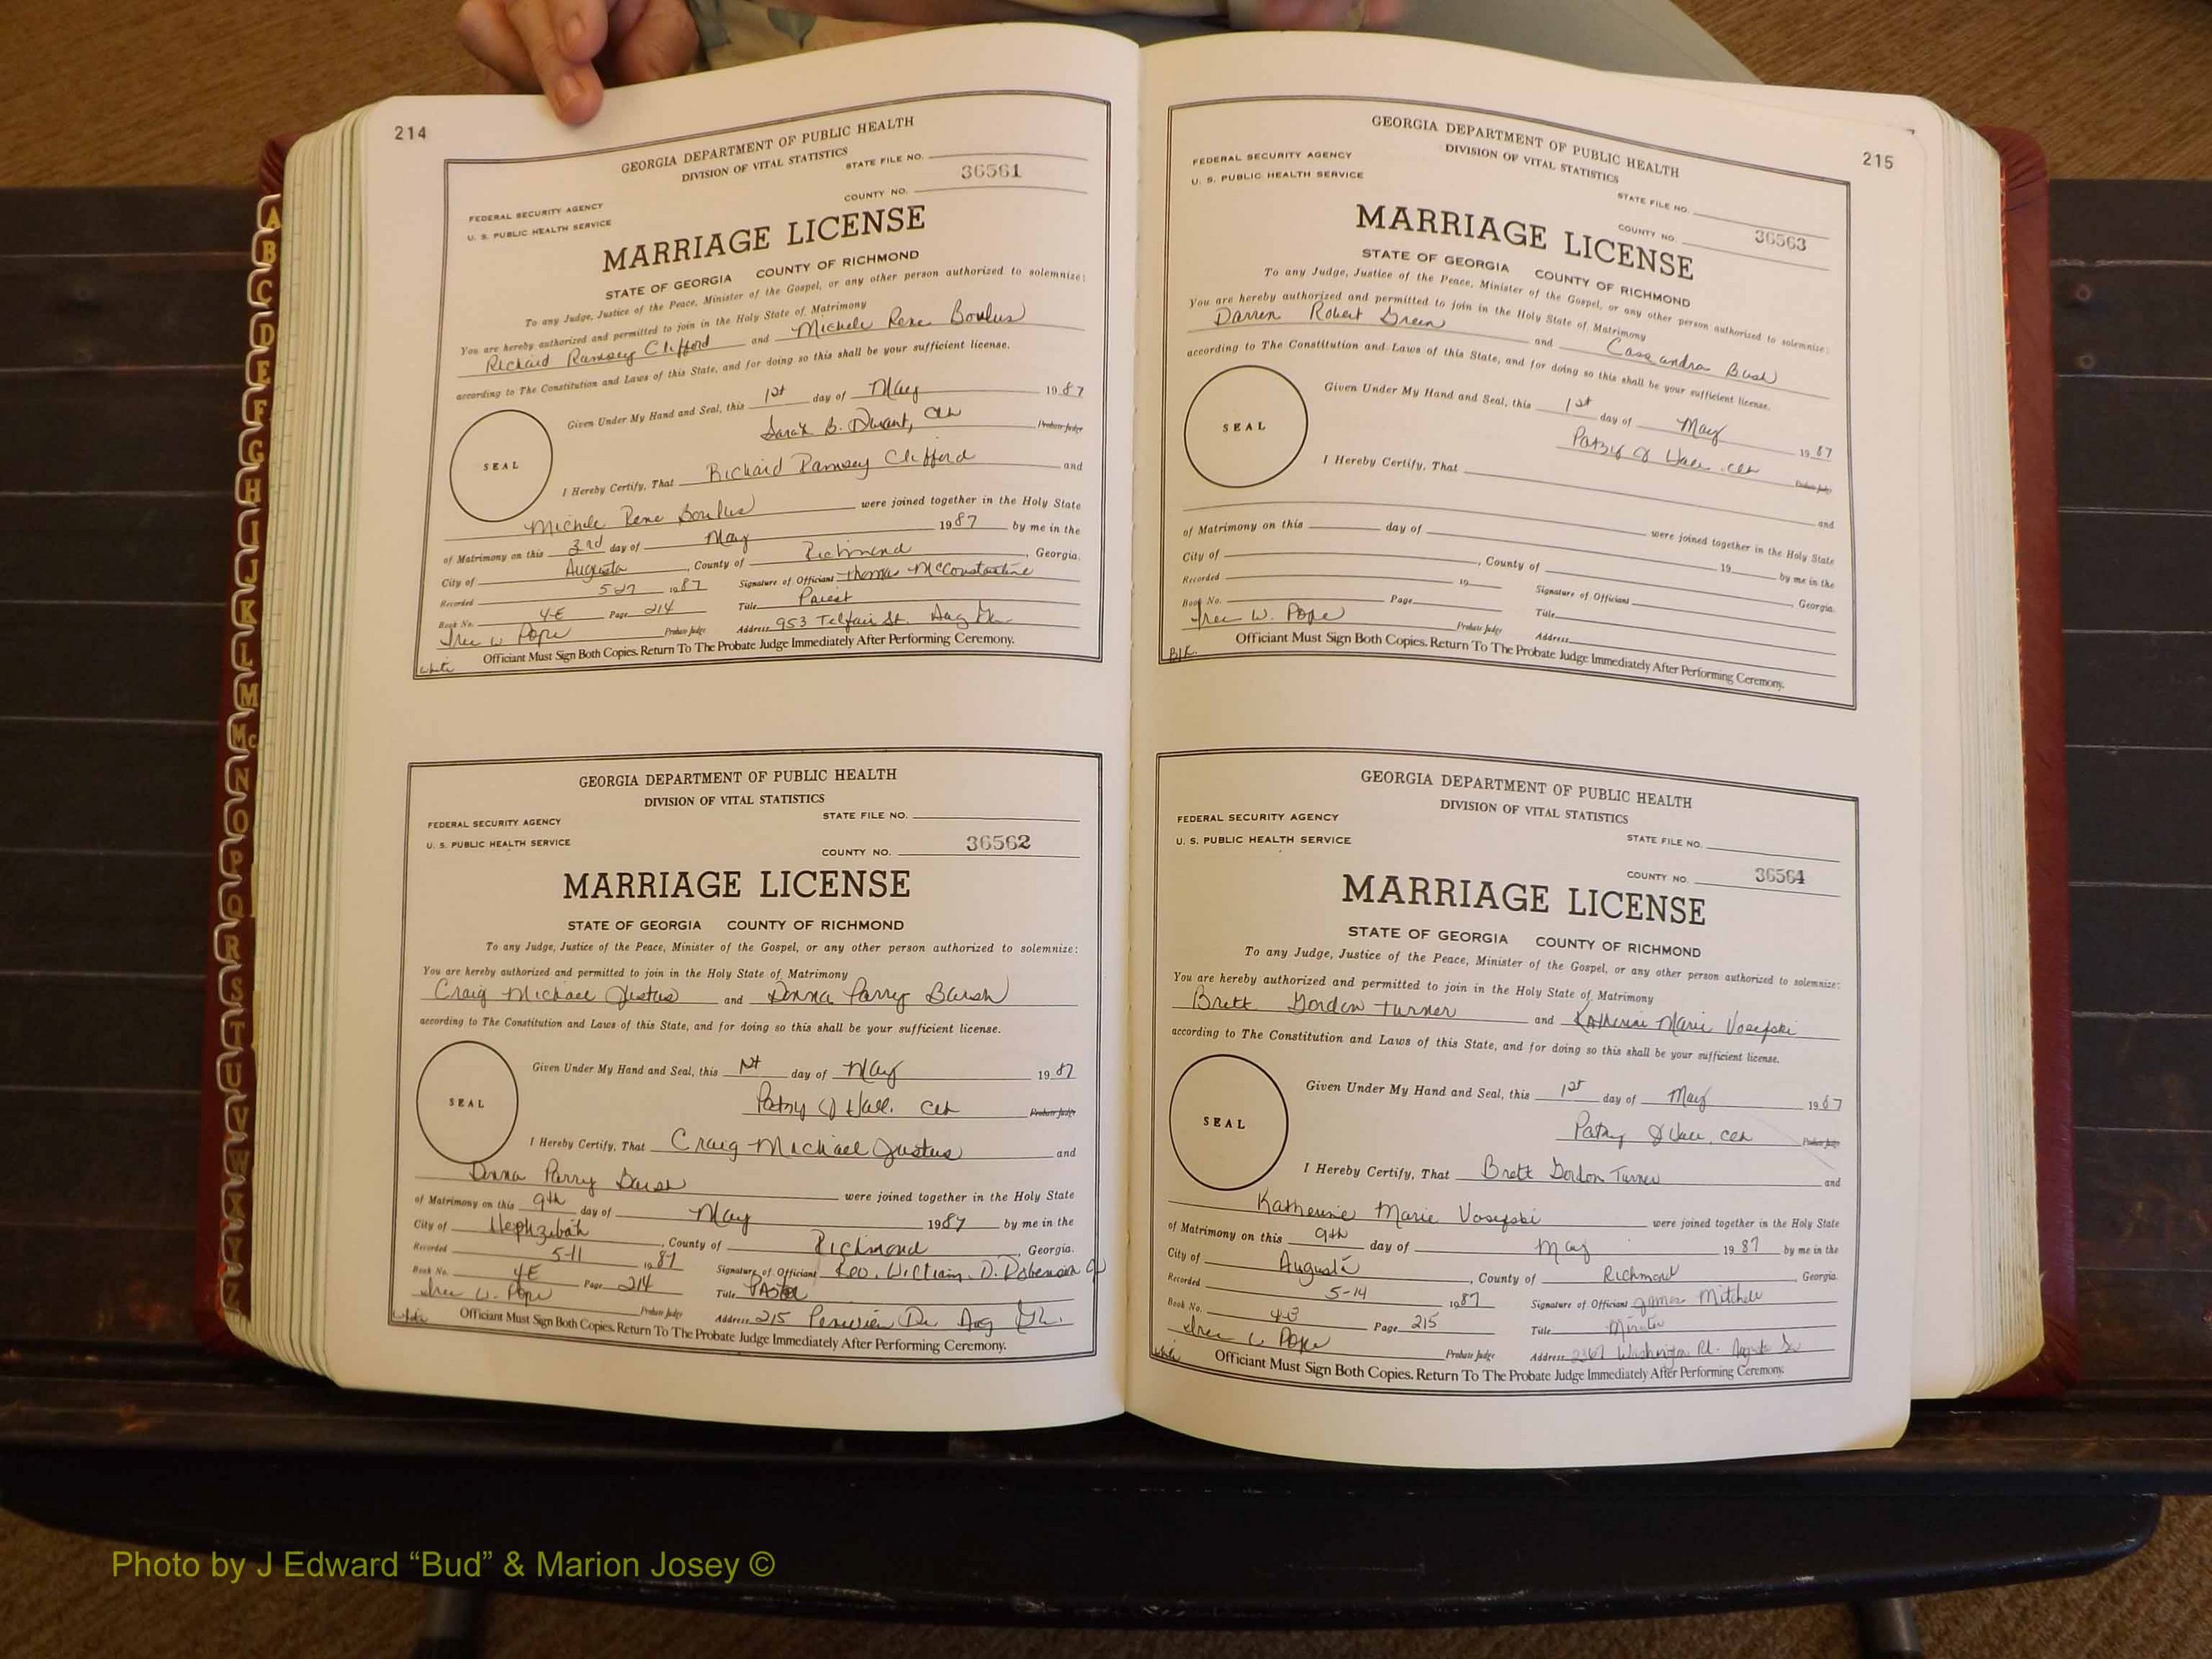 214
GEORGIA DEPARTMENT OF PUBLIC HEALTH
DIVISION OF VITAL STATISTICS
STATE FILE NO.
36561
COUNTY NO.
FEDERAL SECURITY AGENCY
U. S. PUBLIC HEALTH SERVICE
MARRIAGE LICENSE
STATE OF GEORGIA COUNTY OF RICHMOND
To any Judge, Justice of the Peace, Minister of the Gospel, or any other person authorized to solemnize:
You are hereby authorized and permitted to join in the Holy State of Matrimony
Richard Ramsey Clifford and Michele Rene Boulus
according to The Constitution and Laws of this State, and for doing so this shall be your sufficient license.
Given Under My Hand and Seal, this 1st day of May 1987
Sarah B. Durant, Clk Probate Judge
SEAL
I Hereby Certify, That Richard Ramsey Clifford and
Michele Rene Boulus were joined together in the Holy State
of Matrimony on this 3rd day of May 1987 by me in the
City of Augusta, County of Richmond, Georgia.
Recorded 5-27 1987 Signature of Officiant Thomas McConstantine
Book No. 4-E Page 214 Title Priest
W. Pope Probate Judge Address 953 Telfair St. Aug Ga
Officiant Must Sign Both Copies. Return To The Probate Judge Immediately After Performing Ceremony.
White
GEORGIA DEPARTMENT OF PUBLIC HEALTH
DIVISION OF VITAL STATISTICS
FEDERAL SECURITY AGENCY
STATE FILE NO.
U. S. PUBLIC HEALTH SERVICE
COUNTY NO. 36562
MARRIAGE LICENSE
STATE OF GEORGIA COUNTY OF RICHMOND
To any Judge, Justice of the Peace, Minister of the Gospel, or any other person authorized to solemnize:
You are hereby authorized and permitted to join in the Holy State of Matrimony
Craig Michael Justus and Donna Parry Barsh
according to The Constitution and Laws of this State, and for doing so this shall be your sufficient license.
Given Under My Hand and Seal, this 1st day of May 1987
SEAL
Patsy J Hall, Clk Probate Judge
I Hereby Certify, That Craig Michael Justus and
Donna Parry Barsh were joined together in the Holy State
of Matrimony on this 9th day of May 1987 by me in the
City of Hephzibah, County of Richmond, Georgia.
Recorded 5-11 1987 Signature of Officiant Rev. William D. Roberson
Book No. 4E Page 214 Title Pastor
W. Pope Probate Judge Address 215 Dr Aug Ga.
White
Officiant Must Sign Both Copies. Return To The Probate Judge Immediately After Performing Ceremony.
215
GEORGIA DEPARTMENT OF PUBLIC HEALTH
DIVISION OF VITAL STATISTICS
FEDERAL SECURITY AGENCY
U. S. PUBLIC HEALTH SERVICE
STATE FILE NO.
COUNTY NO. 36563
MARRIAGE LICENSE
STATE OF GEORGIA COUNTY OF RICHMOND
To any Judge, Justice of the Peace, Minister of the Gospel, or any other person authorized to solemnize:
You are hereby authorized and permitted to join in the Holy State of Matrimony
Darren Robert Green and Cassandra Bush
according to The Constitution and Laws of this State, and for doing so this shall be your sufficient license.
Given Under My Hand and Seal, this 1st day of May 1987
SEAL
Patsy J Hall, Clk Probate Judge
I Hereby Certify, That and
were joined together in the Holy State
of Matrimony on this day of 19 by me in the
City of , County of , Georgia.
Recorded 19 Signature of Officiant
Book No. Page Title
W. Pope Probate Judge Address
Blk.
Officiant Must Sign Both Copies. Return To The Probate Judge Immediately After Performing Ceremony.
GEORGIA DEPARTMENT OF PUBLIC HEALTH
DIVISION OF VITAL STATISTICS
FEDERAL SECURITY AGENCY
U. S. PUBLIC HEALTH SERVICE
STATE FILE NO.
COUNTY NO. 36564
MARRIAGE LICENSE
STATE OF GEORGIA COUNTY OF RICHMOND
To any Judge, Justice of the Peace, Minister of the Gospel, or any other person authorized to solemnize:
You are hereby authorized and permitted to join in the Holy State of Matrimony
Brett Gordon Turner and Katherine Marie Vosefski
according to The Constitution and Laws of this State, and for doing so this shall be your sufficient license.
Given Under My Hand and Seal, this 1st day of May 1987
SEAL
Patsy J Hall, Clk Probate Judge
I Hereby Certify, That Brett Gordon Turner and
Katherine Marie Vosefski were joined together in the Holy State
of Matrimony on this 9th day of May 1987 by me in the
City of Augusta, County of Richmond, Georgia
Recorded 5-14 1987 Signature of Officiant James Mitchell
Book No. Page 215 Title Minister
W. Pope Probate Judge Address 2367 Washington Rd. Augusta Ga
White
Officiant Must Sign Both Copies. Return To The Probate Judge Immediately After Performing Ceremony.
A
B
C
D
E
F
G
H
I
J
K
L
M
Mc
N
O
P
Q
R
S
T
U
V
W
X
Y
Z
Photo by J Edward “Bud” & Marion Josey ©